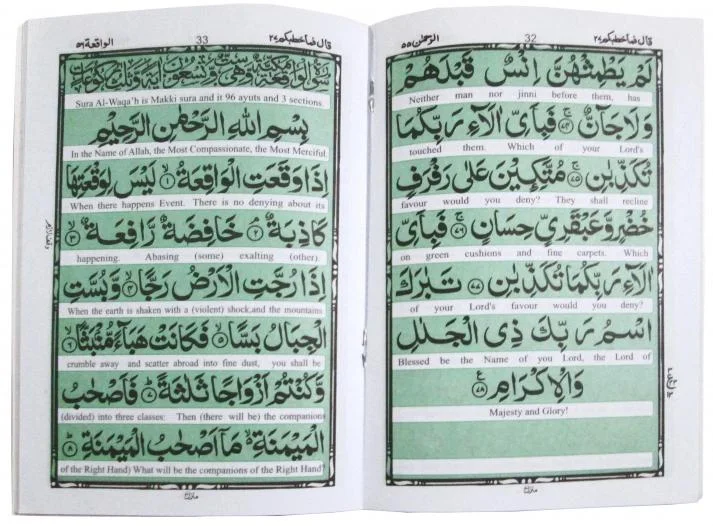 قال فماخطبكم ٢٧ 32 الرحمٰن ٥٥
لَمْ يَطْمِثْهُنَّ اِنْسٌ قَبْلَهُمْ
Neither man nor jinni before them, has
وَلَا جَآنٌّ ۚ ٧٤ فَبِاَىِّ اٰلَآءِ رَبِّكُمَا
touched them. Which of your Lord's
تُكَذِّبٰنِ ۚ ٧٥ مُتَّكِـِٕيْنَ عَلٰى رَفْرَفٍ
favour would you deny? They shall recline
خُضْرٍ وَّعَبْقَرِىٍّ حِسَانٍ ۚ ٧٦ فَبِاَىِّ
on green cushions and fine carpets. Which
اٰلَآءِ رَبِّكُمَا تُكَذِّبٰنِ ٧٧ تَبٰرَكَ
of your Lord's favour would you deny?
اسْمُ رَبِّكَ ذِى الْجَلٰلِ
Blessed be the Name of you Lord, the Lord of
وَالْاِكْرَامِ ٧٨ ع
Majesty and Glory!
منزل
قال فماخطبكم ٢٧ 33 الواقعة ٥٦
Sura Al-Waqa'h is Makki sura and it 96 ayuts and 3 sections.
بِسْمِ اللهِ الرَّحْمٰنِ الرَّحِيْمِ
In the Name of Allah, the Most Compassionate, the Most Merciful
اِذَا وَقَعَتِ الْوَاقِعَةُ ۙ ١ لَيْسَ لِوَقْعَتِهَا
When there happens Event. There is no denying about its
كَاذِبَةٌ ۘ ٢ خَافِضَةٌ رَّافِعَةٌ ۙ ٣
happening. Abasing (some) exalting (other).
اِذَا رُجَّتِ الْاَرْضُ رَجًّا ۙ ٤ وَّبُسَّتِ
When the earth is shaken with a (violent) shock,and the mountains
الْجِبَالُ بَسًّا ۙ ٥ فَكَانَتْ هَبَآءً مُّنْۢبَثًّا ۙ ٦
crumble away and scatter abroad into fine dust, you shall be
وَّكُنْتُمْ اَزْوَاجًا ثَلٰثَةً ؕ ٧ فَاَصْحٰبُ
(divided) into three classes: Then (there will be) the companions
الْمَيْمَنَةِ ۙ مَاۤ اَصْحٰبُ الْمَيْمَنَةِ ؕ ٨
of the Right Hand) What will be the companions of the Right Hand?
منزل